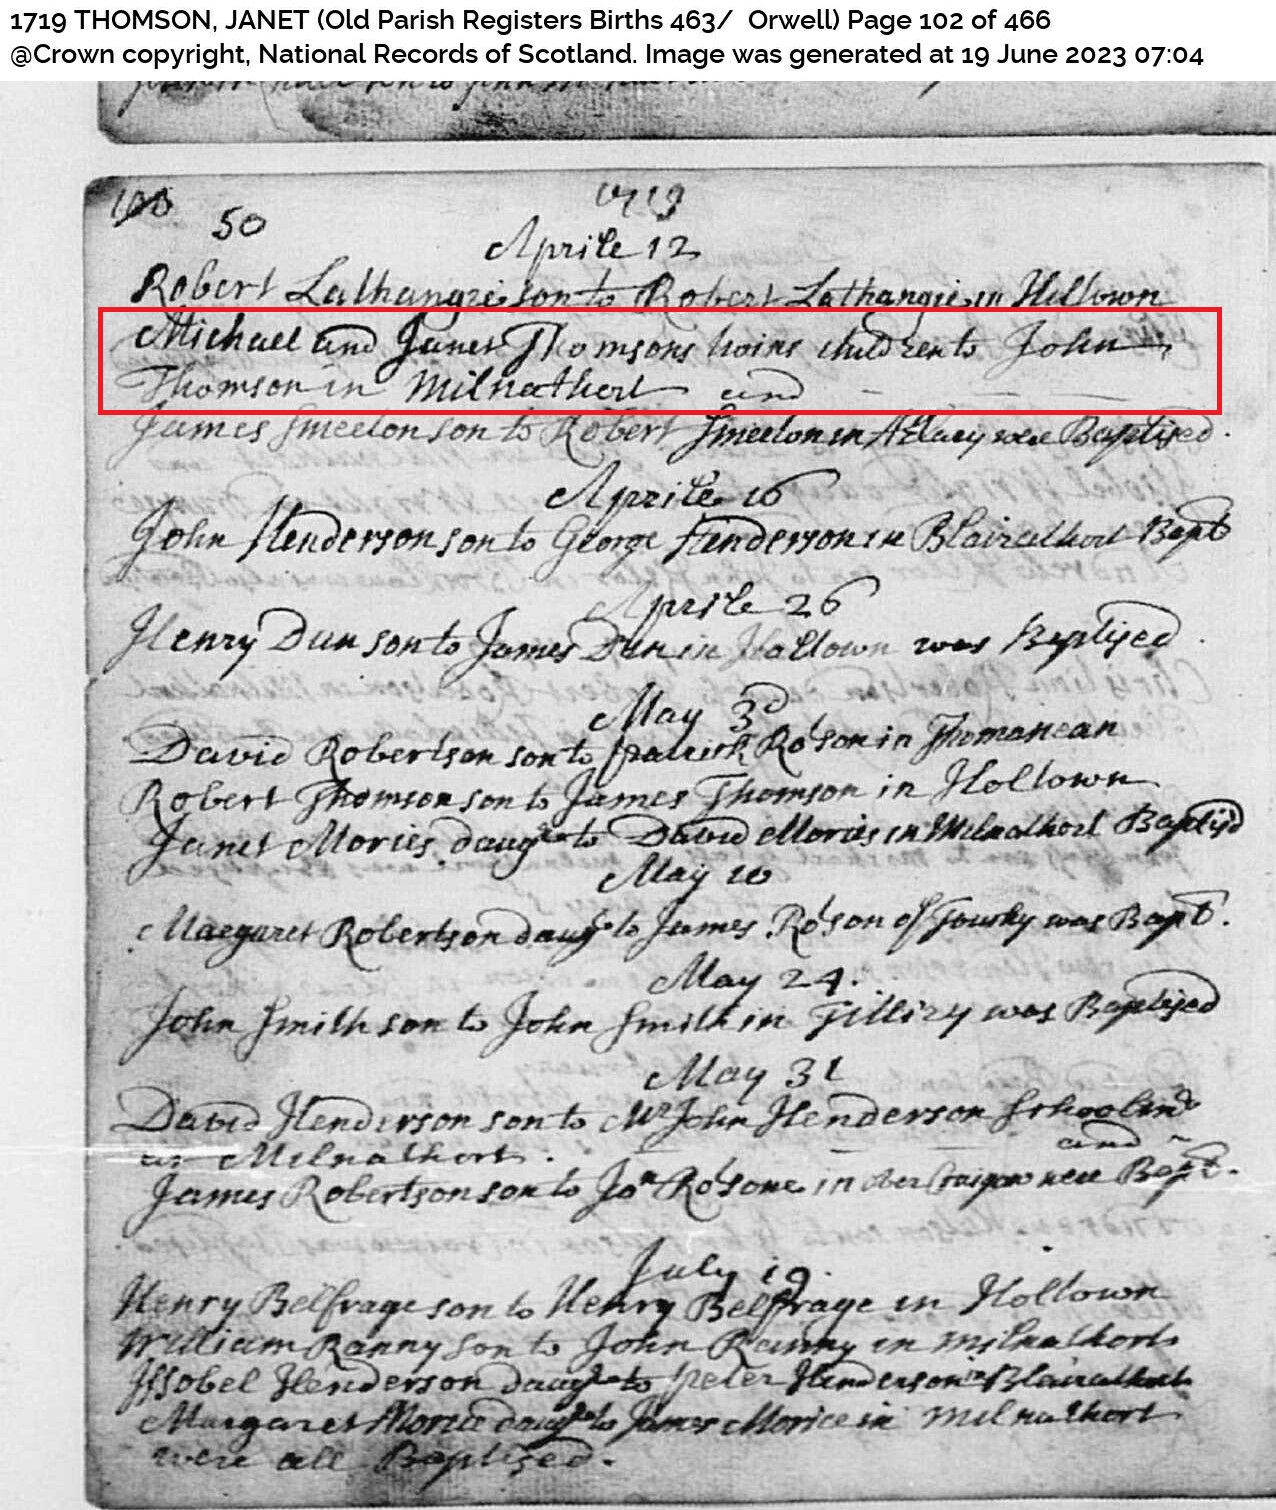 1719 THOMSON, JANET (Old Parish Registers Births 463/ Orwell) Page 102 of 466
@Crown copyright, National Records of Scotland. Image was generated at 19 June 2023 07:04
100
50
1719
Aprile 12
Robert Lathangie son to Robert Lathangie in Hiltown
Michael and Janet Thomsons twins children to John
Thomson in Milnathort and
James Smeeton son to Robert Smeeton in were Baptised.
Aprile 16
John Henderson son to George Henderson in Blairathort Bapt
Aprile 26
Henry Dun son to James Dun in Holtown was Baptised
May 3d
David Robertson son to Patrick Ro'son in Thomanean
Robert Thomson son to James Thomson in Holtown
Janet Mories daugtr to David Mories in Milnathort Baptisd
May 10
Margaret Robertson daugr to James Ro'son of was Bapt.
May 24.
John Smith son to John Smith in Tilliry was Baptised
May 31
David Henderson son to Mr John Henderson
at Milnathort. and
James Robertson son to Jon Ro'sone in over Craigow were Bapt.
July 19.
Henry Belfrage son to Henry Belfrage in Holtown
William Ranny son to John Ranny in Milnathort
Issobel Henderson daugtr to Peter Henderson in Blairathort
Margaret Morice daugtr to James Morice in Milnathort
were all Baptised.